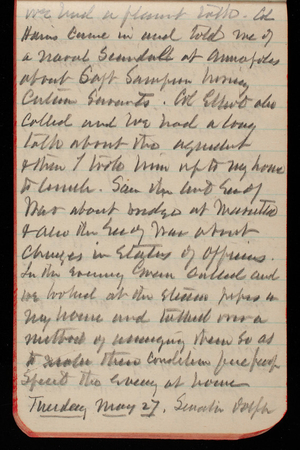 we had a pleasant talk. Col
Hains came in and told me of
a naval Scandall at Annapolis
about Capt Sampson
. Col Elliot also
called and we had a long
talk about the aqueduct
& then I took him up to my house
to lunch. Saw the Secy of
War about bridge at Marietta
& also the Secy War about
changes in Status of Officers.
In the evening Green called and
we looked at the steam pipes in
my house and talked over a
method of arranging them so as
to make them
Spent the evening at home
Tuesday May 27. Senator Dolph